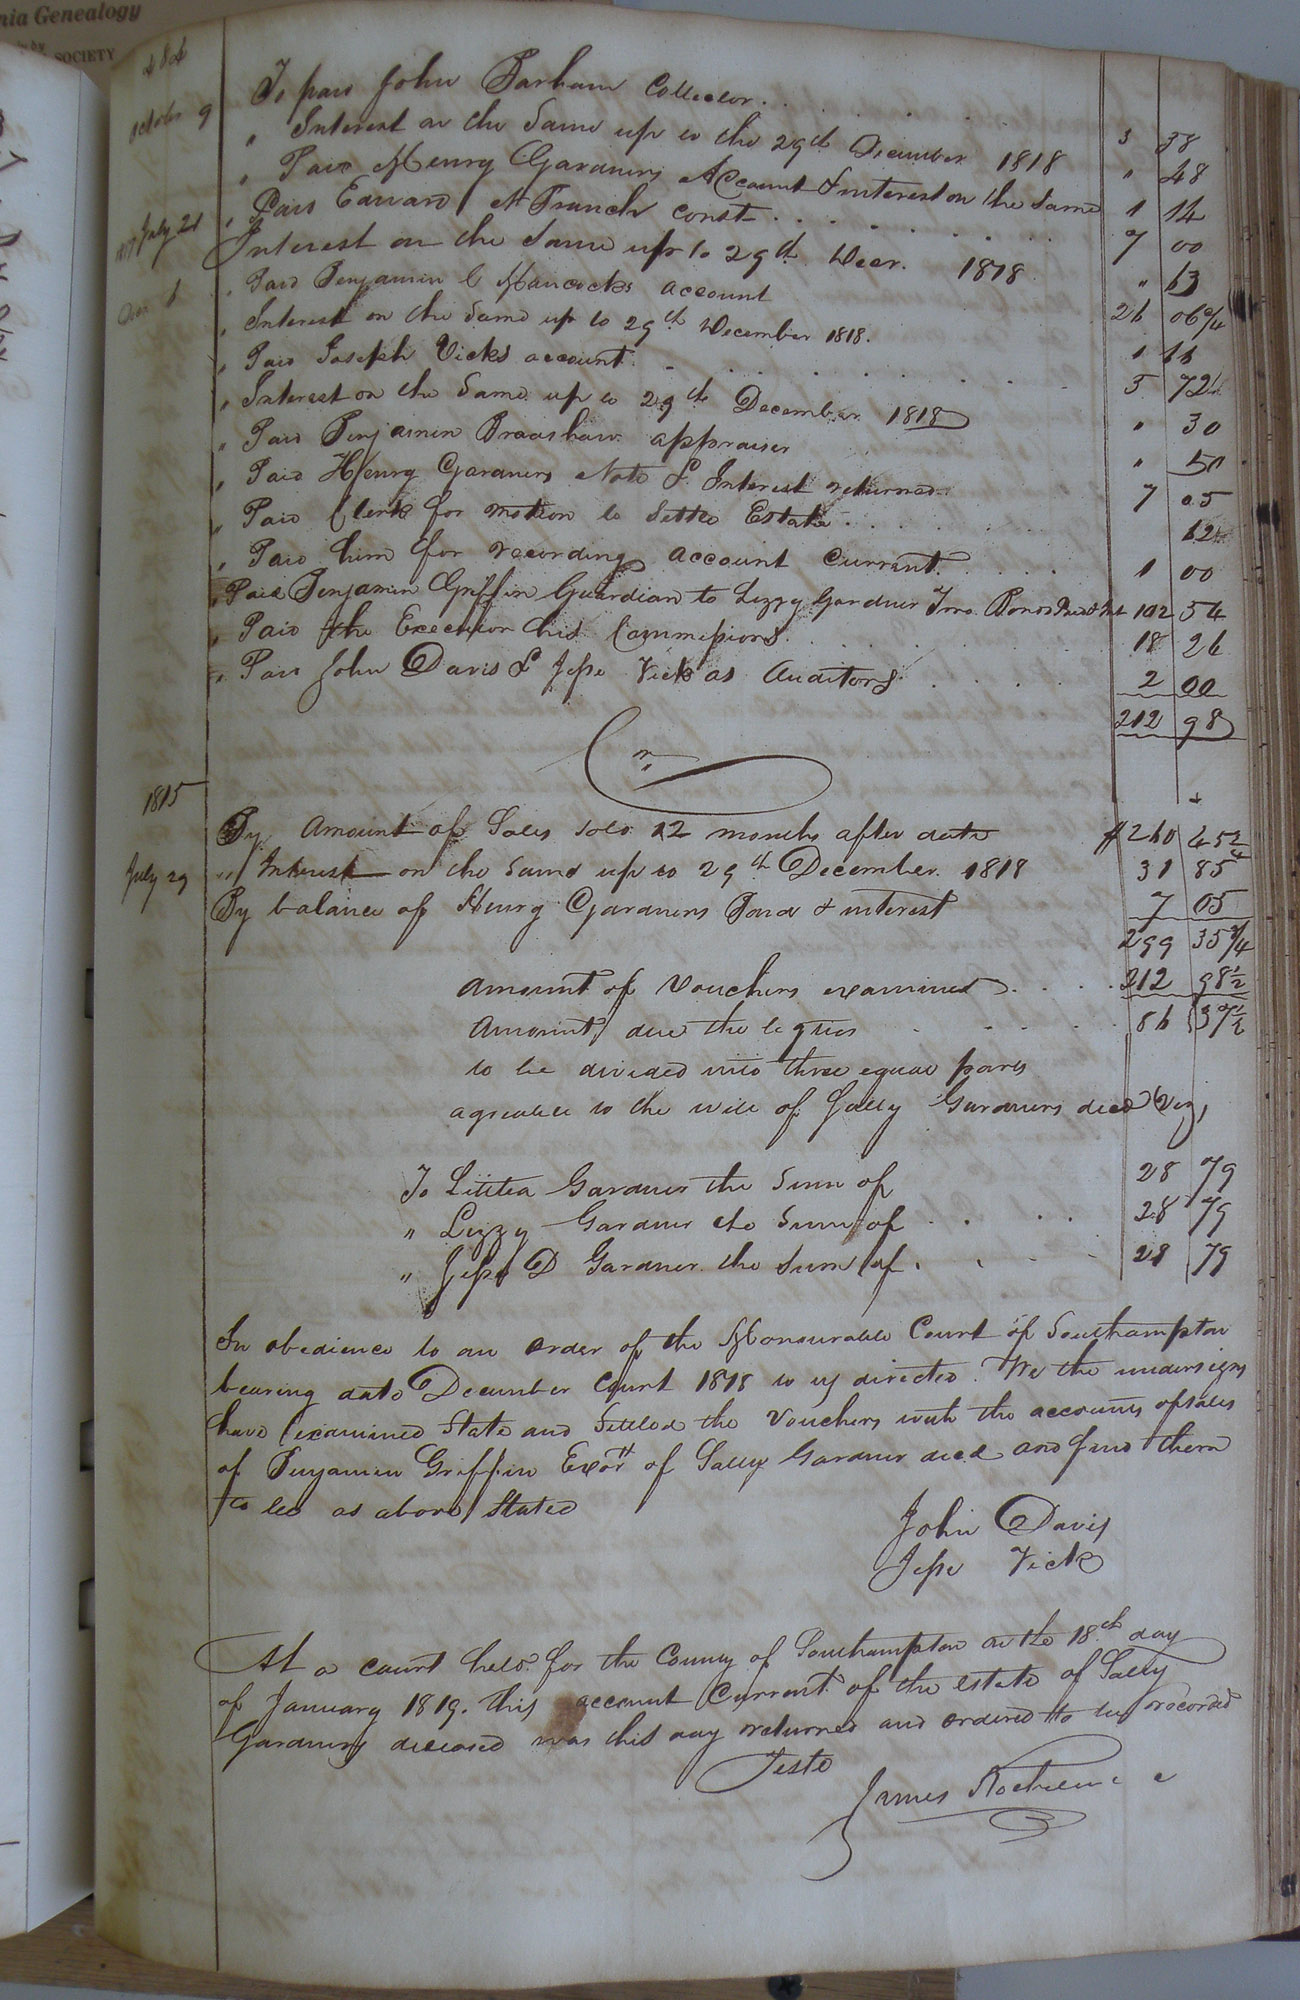 nia Genealogy
SOCIETY
484
October 9
To paid John Barham Collector 3 38
" Interest on the Same up to the 29th December 1818 " 48
" Paid Henry Gardners Account & interest on the Same 1 14
July 21 " Paid Edward A Branch const. 7 00
1817 Interest on the Same up to 29th Decr. 1818 " 63
" Paid Benjamin C Hancocks account 26 06 3/4
" Interest on the Same up to 29th December 1818.
" Paid Joseph Vicks account 5 72
" Interest on the Same up to 29th December 1818 " 30
" Paid Benjamin Bradshaw appraiser " 50
" Paid Henry Gardners Note & Interest returned 7 05
" Paid Clerk for motion to Settle Estate 62
" Paid him for recording account Current 1 00
" Paid Benjamin Griffin Guardian to Lizzy Gardner 102 54
" Paid the Executor his Commissions 18 26
" Paid John Davis & Jesse Vick as Auditors 2 00
212 98
Cr.
1815
By Amount of Sales Sold 12 months after date $260 45 2/4
July 29 " Interest on the Same up to 29th December 1818 31 85
By balance of Henry Gardners Bond & interest 7 05
299 35 2/4
Amount of Vouchers examined 212 98 1/2
Amount due the legties 86 37 1/2
to be divided into three equal parts
agreeable to the will of Sally Gardners decd Viz,
To Littitea Gardner the Sum of 28 79
" Lizzy Gardner the Sum of 28 79
" Jesse D Gardner the Sum of 28 79
In obedience to an order of the Honourable Court of Southampton
bearing date December Court 1818 to us directed. We the undersigns
have examined State and Settled the Vouchers with the accounts of sales
of Benjamin Griffin Exor of Sally Gardner decd and find them
to be as above Stated
John Davis
Jesse Vick
At a court held for the County of Southampton on the 18th day
of January 1819. this account Current of the estate of Sally
Gardners deceased was this day returned and ordered to be recorded
Teste
James Rochelle